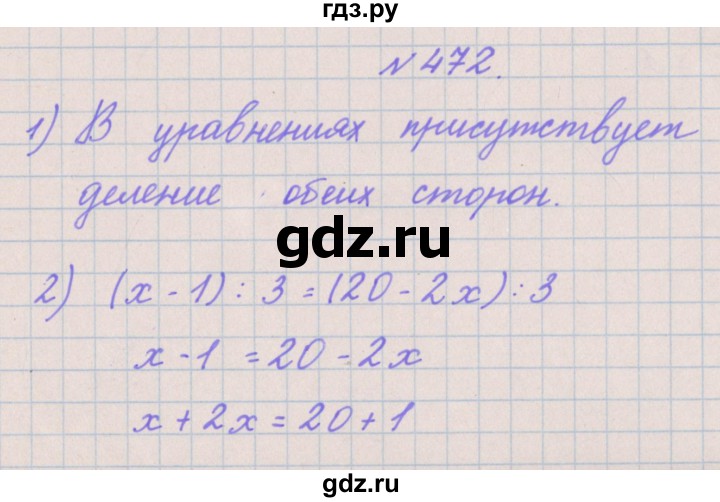 гдз.ру
№472.
1) В уравнениях присутствует
деление обеих сторон.
gdz.ru
2) (x - 1) : 3 = (20 - 2x) : 3
x - 1 = 20 - 2x
x + 2x = 20 + 1
gdz.ru